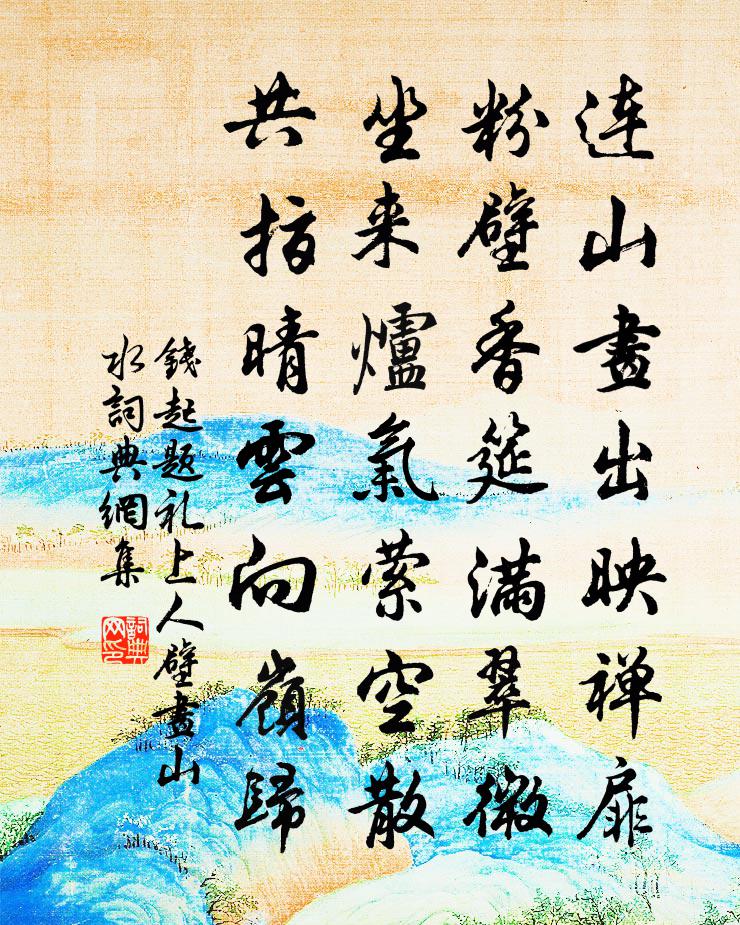 连山畫出映禅扉
粉壁香筵满翠微
坐来爐氣萦空散
共指晴雲向嶺歸
錢起题礼上人壁畫山
水詞典網集
詞典
网印